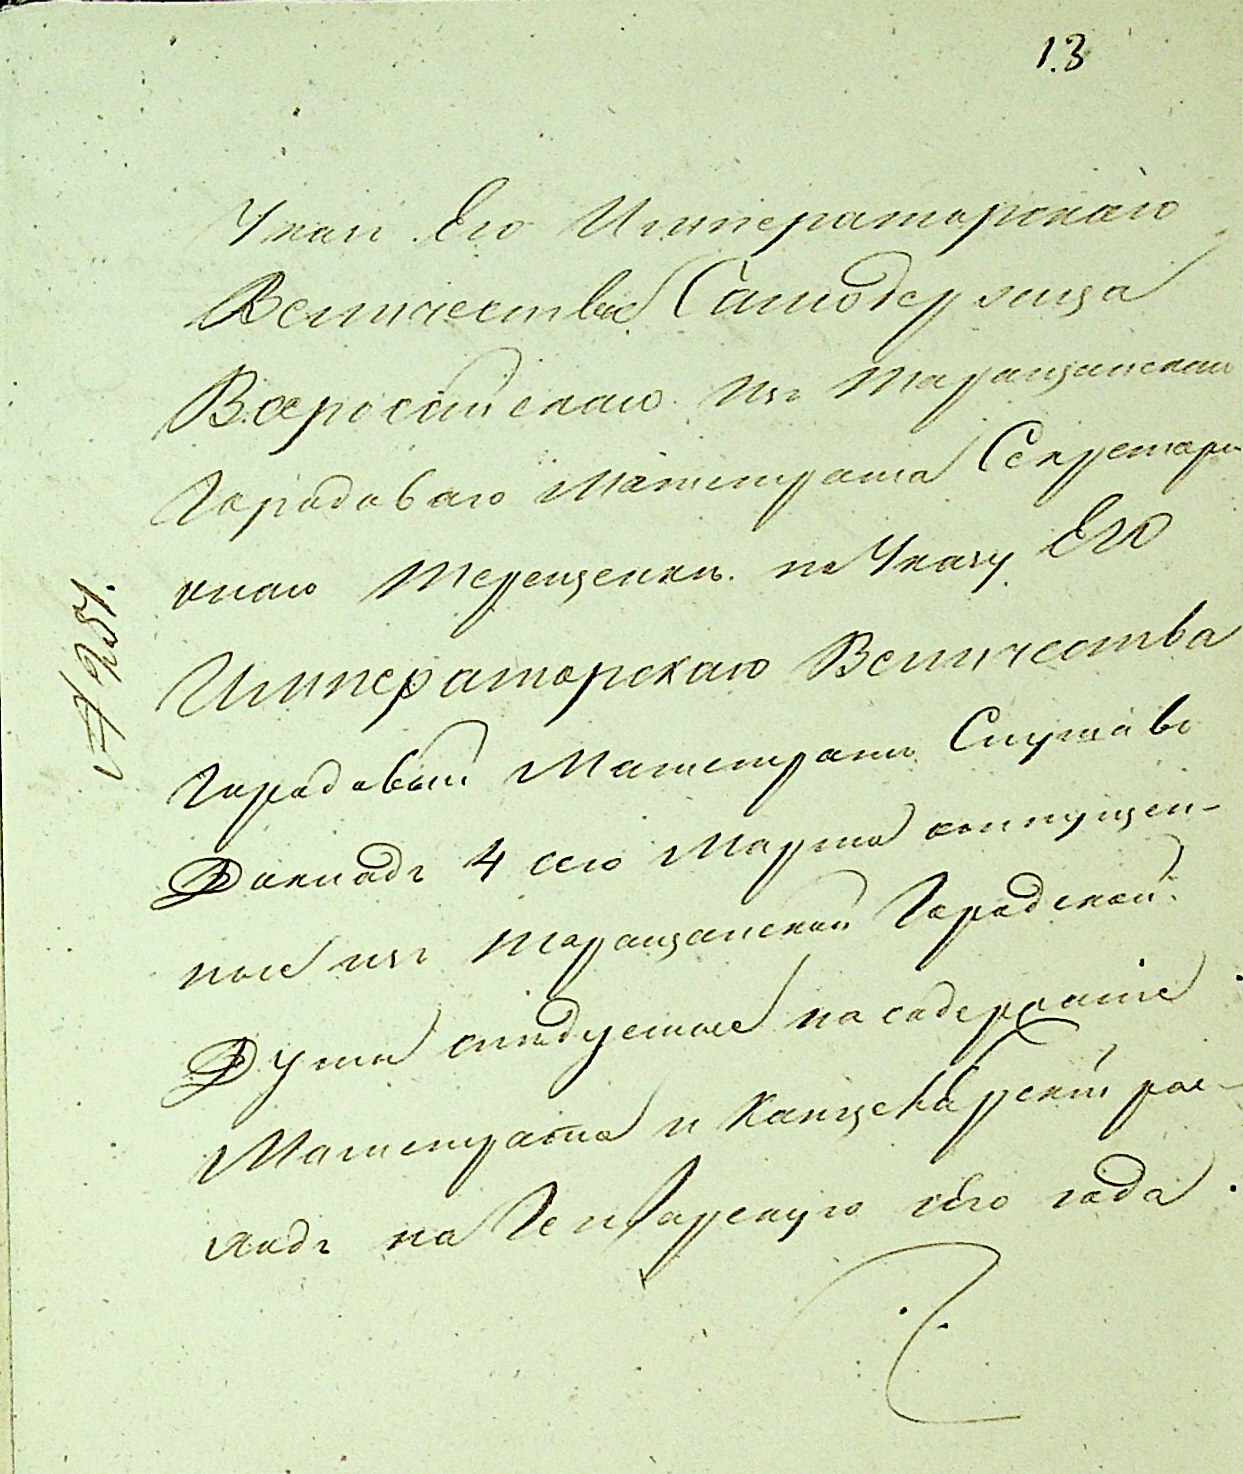 13
Указ Его Императорскаго
Величества Самодержца
Всероссийскаго из Таращанскаго
Городоваго Магистрата Секретарю
оного Терещенку. по Указу Его
Императорскаго Величества
Городовый Магистрат Слушав
Доклад 4 сего Марта отпущен-
ные из Таращанской Городской
Думы следуемые на содержание
Магистрата и Канцелярский рас-
ход на Генварскую сего года
№ 251.